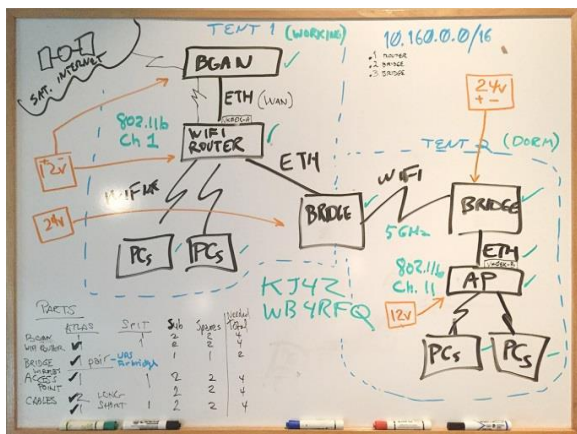 TENT 1 (WORKING)
10.160.0.0/16
.1 ROUTER
.2 BRIDGE
.3 BRIDGE
SAT. INTERNET
BGAN
ETH (WAN)
802.11b
Ch 1
WIFI
ROUTER
ETH
12v
24v
WIFI
PCs
PCs
BRIDGE
WIFI
5GHz
24v
+ -
TENT 2 (DORM)
BRIDGE
ETH
802.11b
Ch. 11
AP
12v
PCs
PCs
KJ4Z
WB4RFQ
PARTS
ATLAS SPLIT Sub Spares Needed Total
WIFI ROUTER
BRIDGE pair
ACCESS POINT 1 2 2 4
CABLES LONG
SHORT 1 2 2 4